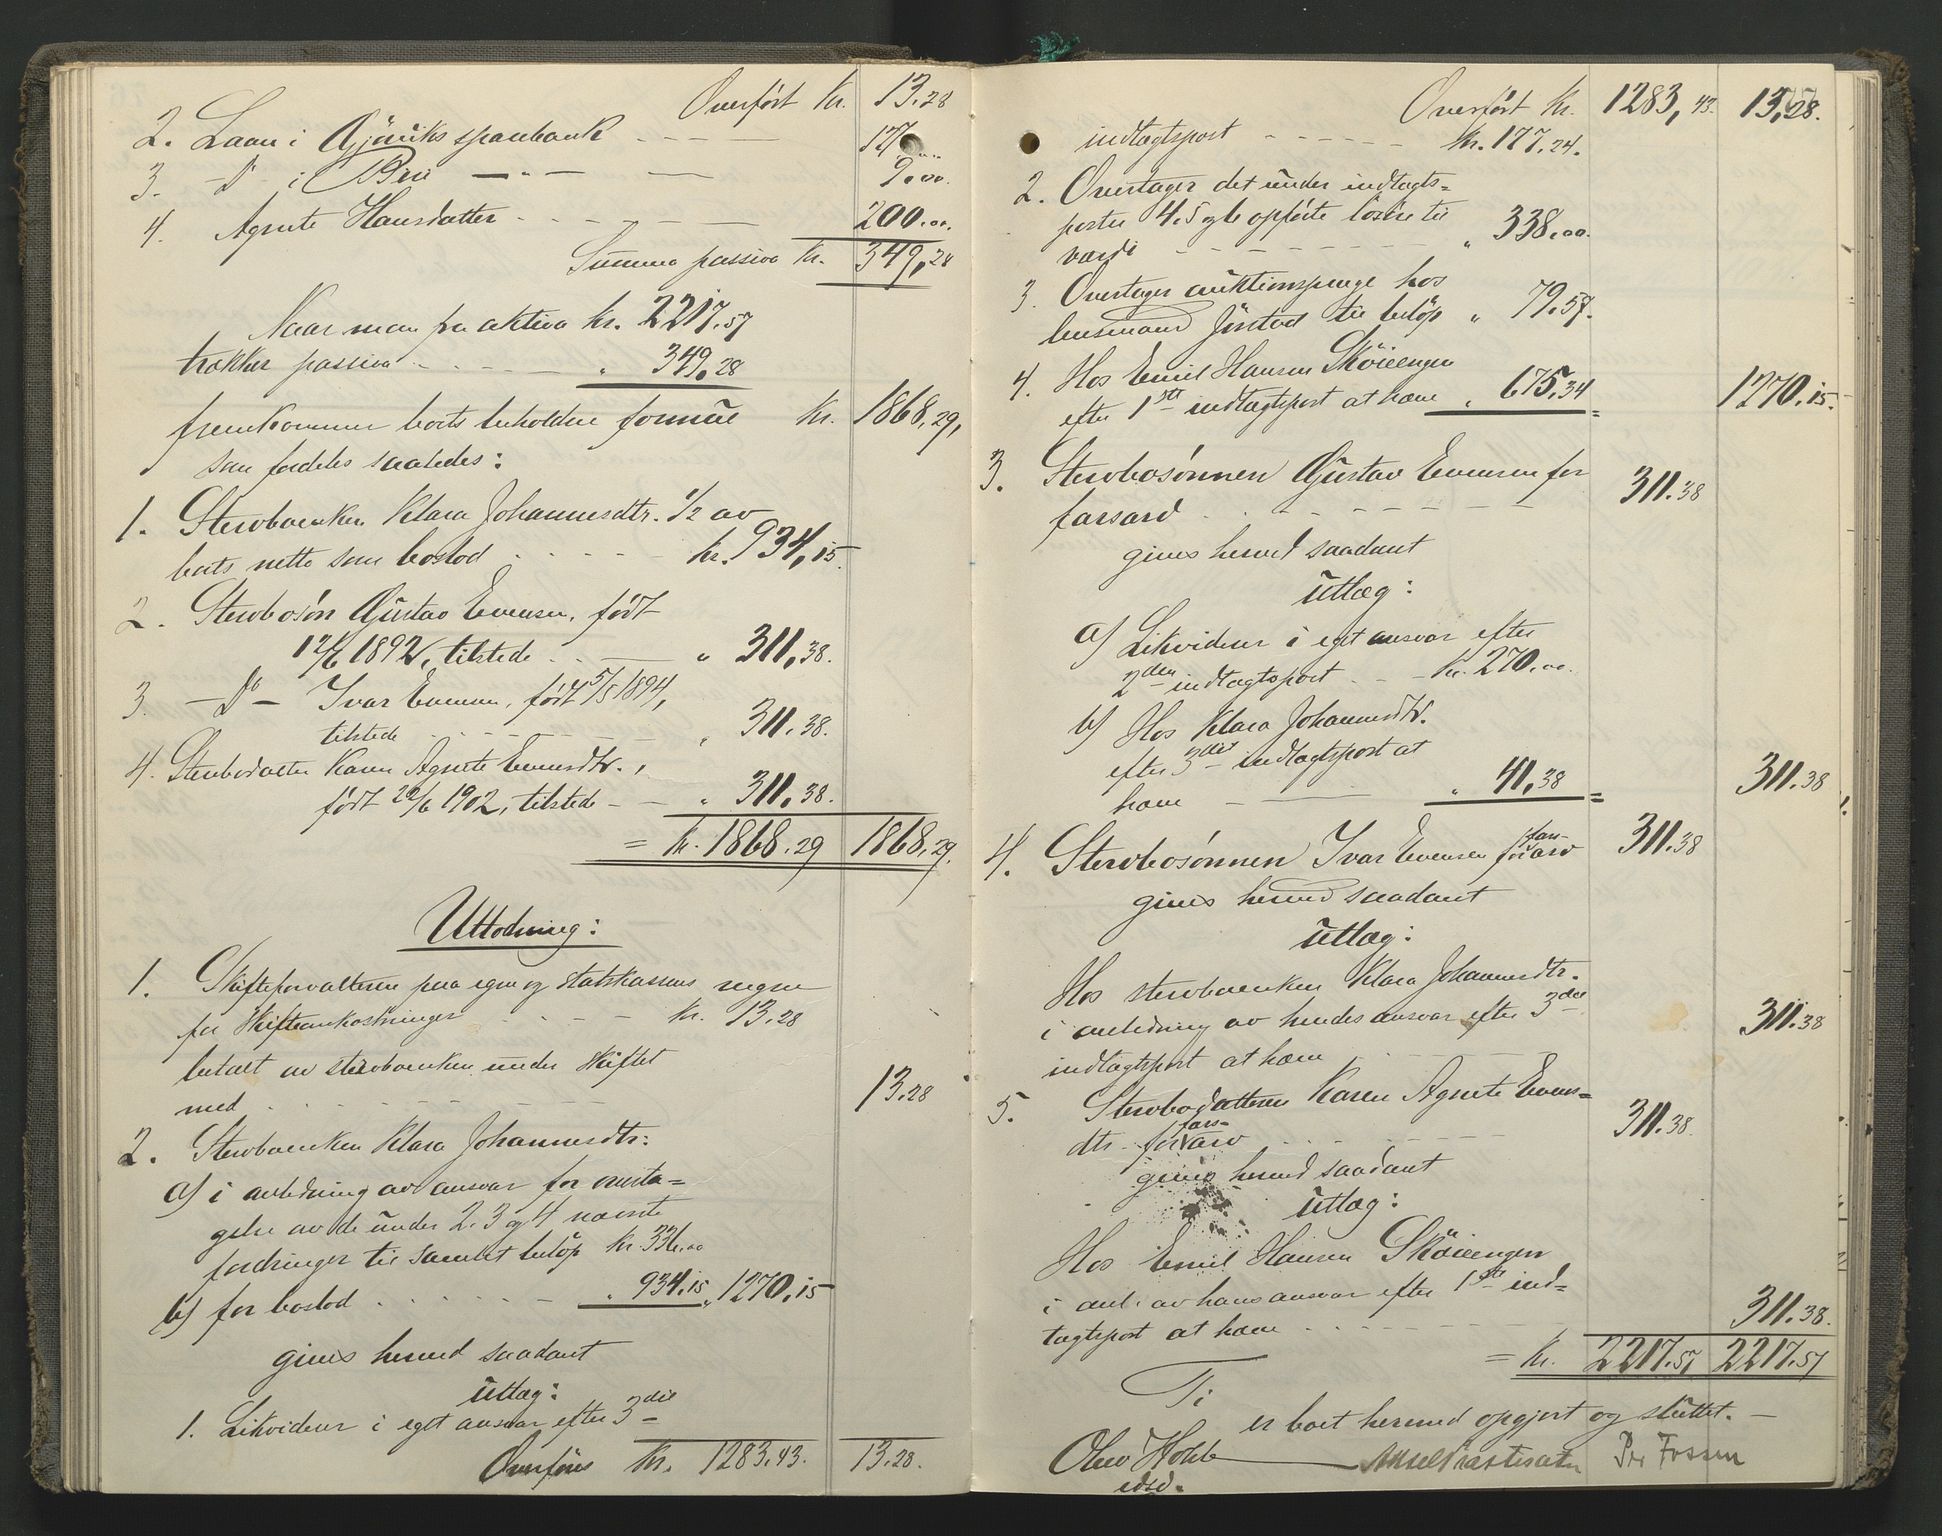 Overført Kr. 13.28
2. Laan i Gjøviks sparebank - - - 127
3. -D- i Biri - " - - 9.00.
4. Agnete Hansdatter - - - - 200.00.
Summa passiva Kr. 349,28
Naar man fra aktiva kr. 2217.57
trækker passiva - - - - - " 349,28
fremkommer boets beholdne formue Kr. 1868,29,
som fordeles saaledes:
1. Stervboenken Klara Johannesdtr. 1/2 av
boets netto som boslod - - - - Kr. 934,15.
2. Stervbosøn Gustav Evensen, født
12/6 1892, tilstede - - - " 311,38.
3. -Do- Ivar Evensen, født 5/5 1894,
tilstede - - - - - - " 311.38.
4. Stervbodatter Karen Agnete Evensdtr.,
født 22/6 1902, tilstede - - " 311,38.
= Kr. 1868.29 1868,29.
Utlodning:
1. Skifteforvalteren paa egne og statskassens vegne
for skifteomkostninger - - - - Kr. 13.28
betalt av stervboenken under skiftet
med - - - - - - - 13.28
2. Stervboenken Klara Johannesdtr:
a) i anledning av ansvar for overta=
gelse av de under 2. 3 og 4 nævnte
fordringer til samlet beløp Kr. 336.00
b) for boslod - - - - - - " 934.15 " 1270,15
gives herved saadant
utlæg:
1. Likviderer i eget ansvar efter 3die
Overføres Kr. 1283.43. 13.28.
Overført Kr. 1283,43. 13,28.
indtægtspost - - - - - Kr. 177.24.
2. Overtager det under indtægts=
poster 4. 5 og 6 opførte løsøre til
værdi - - - - - - " 338,00.
3. Overtager auktionspenge hos
lensmand Jøstad til beløp " 79.57.
4. Hos Emil Hansen Skøiengen
efter 1ste indtægtspost at hæve " 675,34 = 1270.15.
3. Stervbosønnen Gustav Evensen for
farsarv - - - - - - - 311.38
gives herved saadant
utlæg:
a) Likviderer i eget ansvar efter
2den indtægtspost - - - Kr. 270.00.
b) Hos Klara Johannesdtr.
efter 3die indtægtspost at
hæve - - " 41,38 = 311.38
4. Stervbosønnen Ivar Evensen for fars-arv 311.38
gives herved saadant
utlæg:
Hos stervboenken Klara Johannesdtr.
i anledning av hendes ansvar efter 3die
indtægtspost at hæve - - - - 311.38
5. Stervbodatteren Karen Agnete Evens=
dtr. for fars-arv - - - - - 311.38.
gives herved saadant
utlæg:
Hos Emil Hansen Skøiengen
i anl. av hans ansvar efter 1ste ind=
tægtspost at hæve - - - - - - 311.38.
= Kr. 2217.57 2217.57
Ti
er boet herved opgjort og sluttet. -
Olav Holte Per Fossen
edsv.